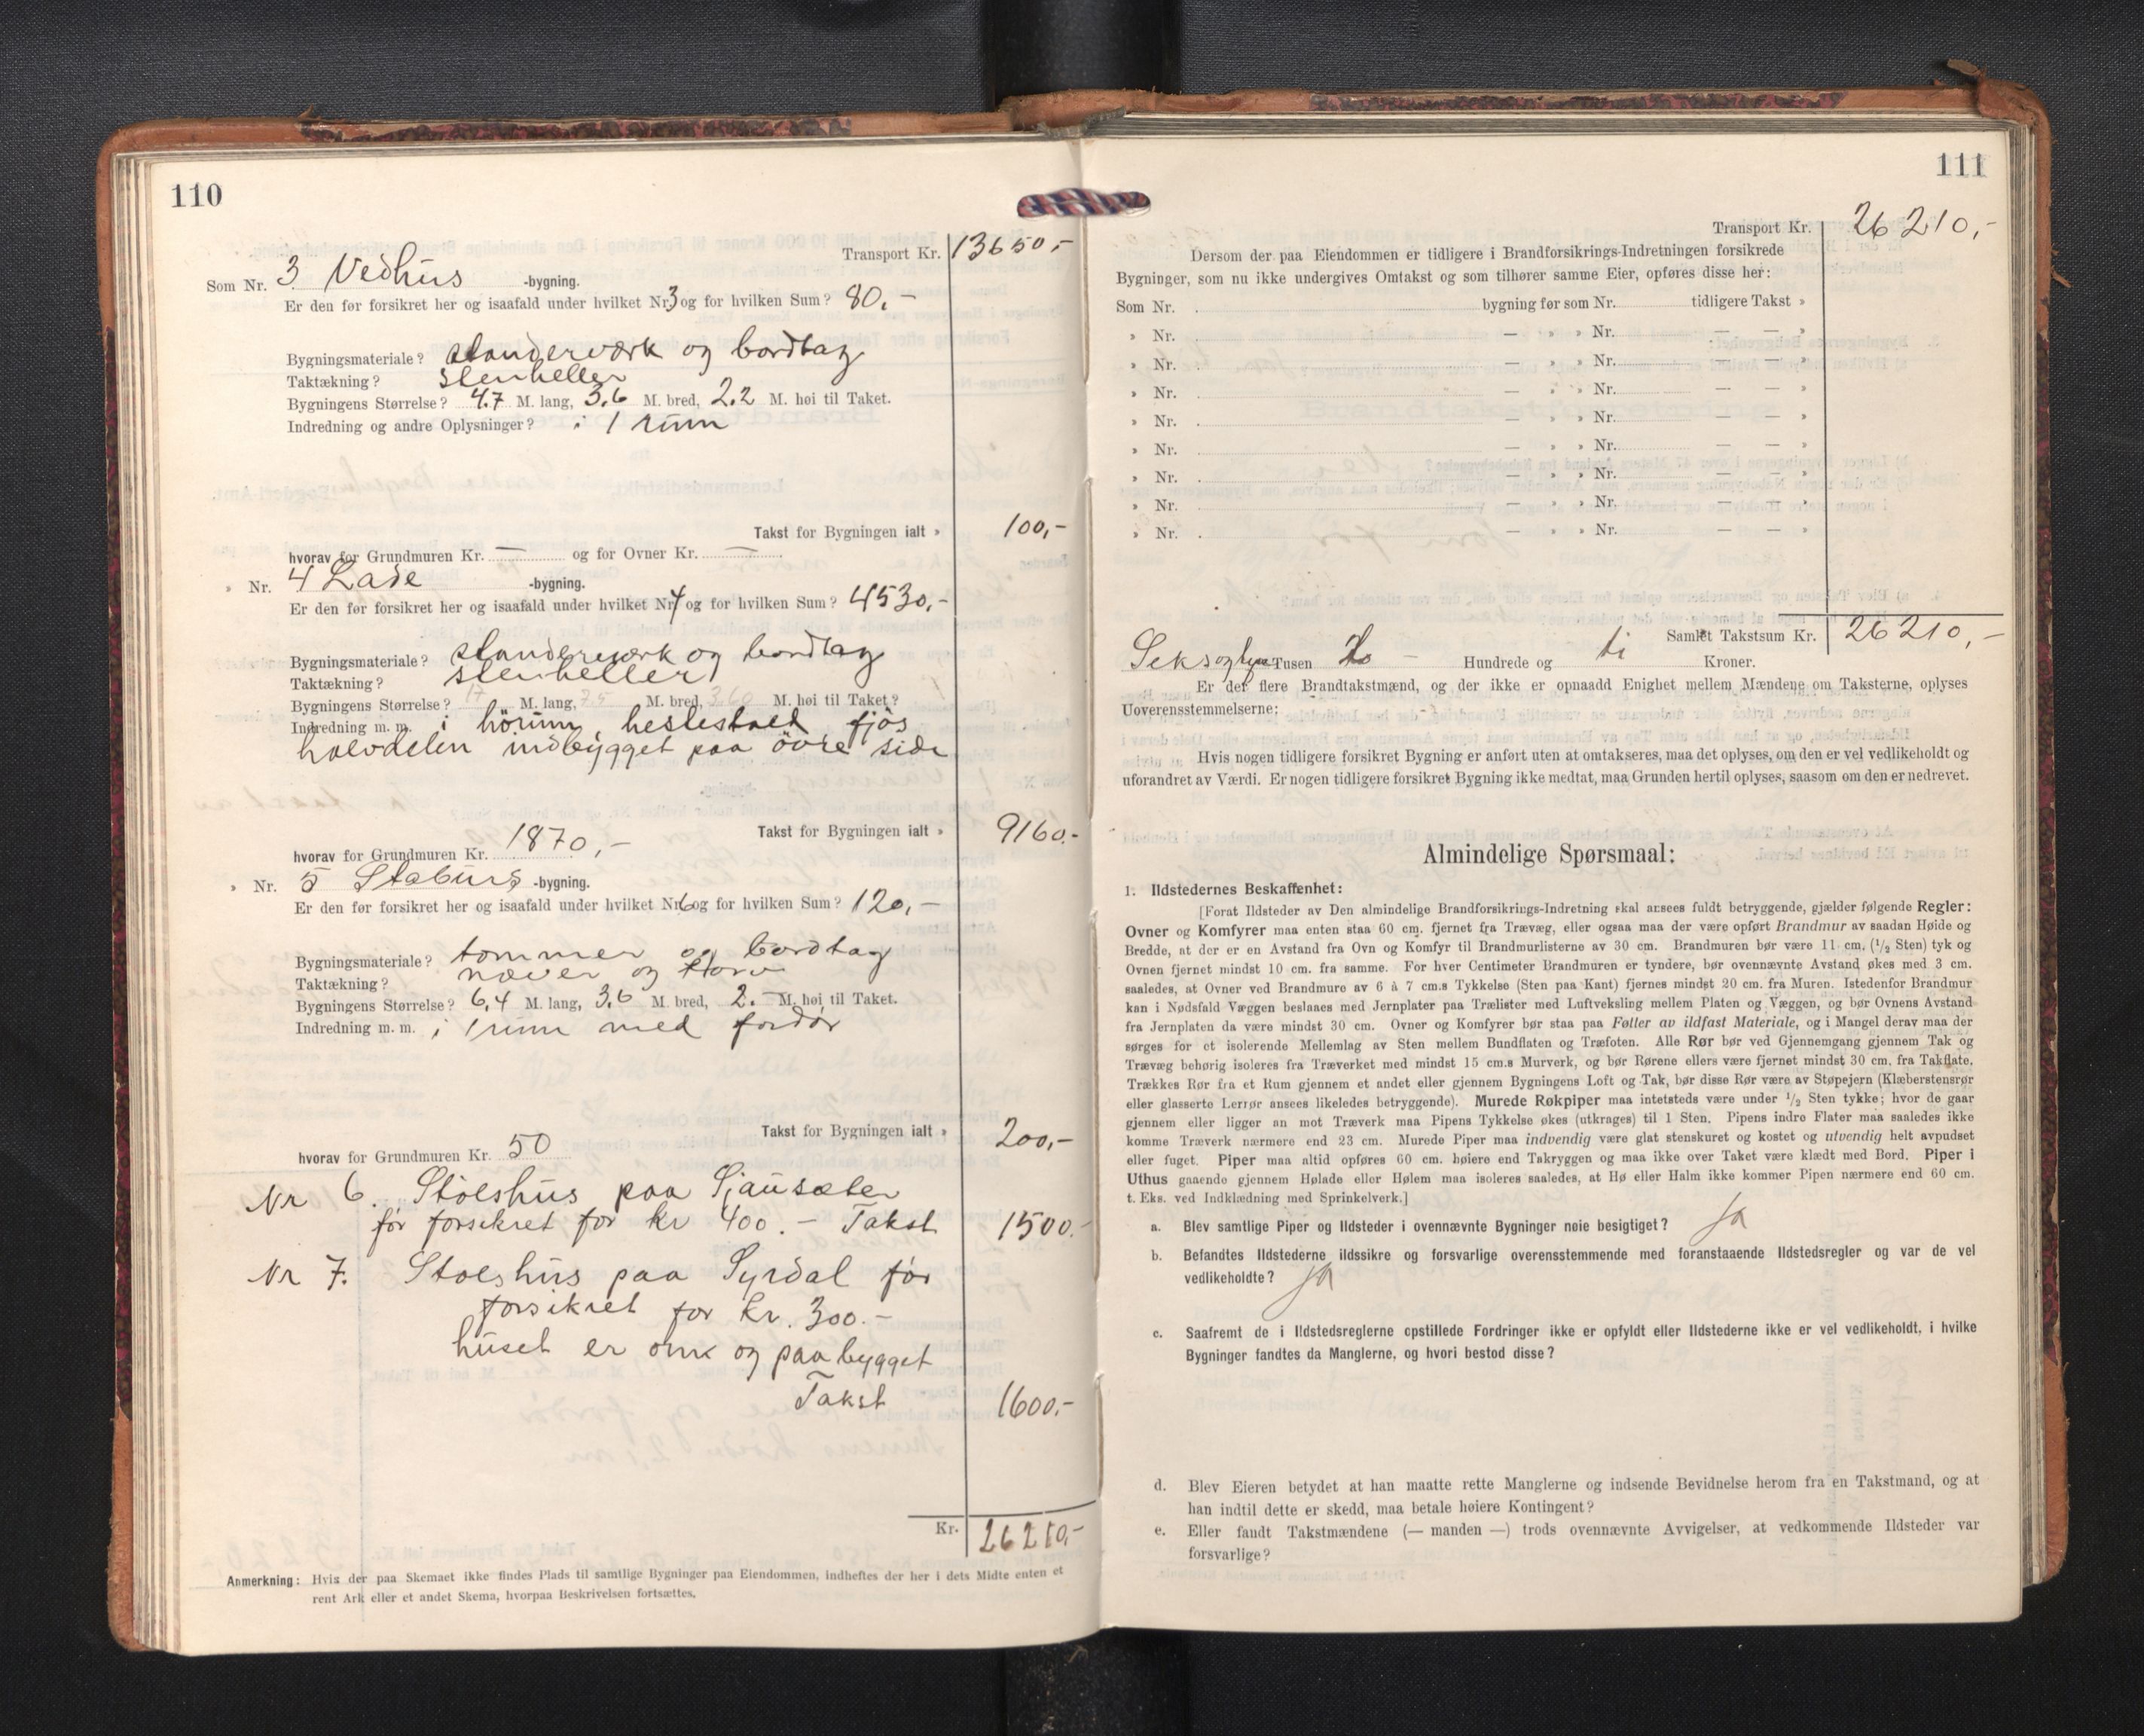 110
Transport Kr. 13650,-
Som Nr. 3 Vedhus -bygning.
Er den før forsikret her og isaafald under hvilket Nr. 3 og for hvilken Sum? 80,-
Bygningsmateriale? standerværk og bordtag
Taktækning? stenheller
Bygningens Størrelse? 4.7 M. lang, 3,6 M. bred, 2.2 M. høi til Taket.
Indredning og andre Oplysninger? i 1 rum
Takst for Bygningen ialt » 100,-
hvorav for Grundmuren Kr. — og for Ovner Kr. —
» Nr. 4 Lade -bygning.
Er den før forsikret her og isaafald under hvilket Nr. 4 og for hvilken Sum? 4530,-
Bygningsmateriale? standerverk og bordtag
Taktækning? stenheller
Bygningens Størrelse? 17 M. lang, 7.5 M. bred, 3,60 M. høi til Taket?
Indredning m. m. i hörum hestestald fjös
halvdelen indbygget paa övre side
Takst for Bygningen ialt » 9160.-
hvorav for Grundmuren Kr. 1870,-
» Nr. 5 Stabürs -bygning.
Er den før forsikret her og isaafald under hvilket Nr. 6 og for hvilken Sum? 120,-
Bygningsmateriale? tømmer og bordtag
Taktækning? næver og torv
Bygningens Størrelse? 6,4 M. lang, 3,6 M. bred, 2.- M. høi til Taket.
Indredning m. m. i 1 rum med fordör
Takst for Bygningen ialt » 200,-
hvorav for Grundmuren Kr. 50
Nr 6. Stölshüs paa Sjausæter
før forsikret for kr 400.- Takst 1500.-
Nr 7. Stölshüs paa Syrdal før
forsikret for kr. 300.-
hüset er om og paabygget
Takst 1600.-
Kr. 26210,-
Anmerkning: Hvis der paa Skemaet ikke findes Plads til samtlige Bygninger paa Eiendommen, indheftes der her i dets Midte enten et
rent Ark eller et andet Skema, hvorpaa Beskrivelsen fortsættes.
111
Transport Kr. 26210,-
Dersom der paa Eiendommen er tidligere i Brandforsikrings-Indretningen forsikrede
Bygninger, som nu ikke undergives Omtakst og som tilhører samme Eier, opføres disse her:
Som Nr. bygning før som Nr. tidligere Takst »
» Nr. — » » Nr. — — »
» Nr. — » » Nr. — — »
» Nr. — » » Nr. — — »
» Nr. — » » Nr. — — »
» Nr. — » » Nr. — — »
» Nr. — » » Nr. — — »
» Nr. — » » Nr. — — »
» Nr. — » » Nr. — — »
Samlet Takstsum Kr. 26210,-
Seksogtyve Tusen To - Hundrede og ti Kroner.
Er det flere Brandtakstmænd, og der ikke er opnaadd Enighet mellem Mændene om Taksterne, oplyses
Uoverensstemmelserne:
Hvis nogen tidligere forsikret Bygning er anført uten at omtakseres, maa det oplyses, om den er vel vedlikeholdt og
uforandret av Værdi. Er nogen tidligere forsikret Bygning ikke medtat, maa Grunden hertil oplyses, saasom om den er nedrevet.
Almindelige Spørsmaal:
1. Ildstedernes Beskaffenhet:
[Forat Ildsteder av Den almindelige Brandforsikrings-Indretning skal ansees fuldt betryggende, gjælder følgende Regler:
Ovner og Komfyrer maa enten staa 60 cm. fjernet fra Trævæg, eller ogsaa maa der være opført Brandmur av saadan Høide og
Bredde, at der er en Avstand fra Ovn og Komfyr til Brandmurlisterne av 30 cm. Brandmuren bør være 11 cm. (1/2 Sten) tyk og
Ovnen fjernet mindst 10 cm. fra samme. For hver Centimeter Brandmuren er tyndere, bør ovennævnte Avstand økes med 3 cm.
saaledes, at Ovner ved Brandmure av 6 à 7 cm.s Tykkelse (Sten paa Kant) fjernes mindst 20 cm. fra Muren. Istedenfor Brandmur
kan i Nødsfald Væggen beslaaes med Jernplater paa Trælister med Luftveksling mellem Platen og Væggen, og bør Ovnens Avstand
fra Jernplaten da være mindst 30 cm. Ovner og Komfyrer bør staa paa Føtter av ildfast Materiale, og i Mangel derav maa der
sørges for et isolerende Mellemlag av Sten mellem Bundflaten og Træfoten. Alle Rør bør ved Gjennemgang gjennem Tak og
Trævæg behørig isoleres fra Træverket med mindst 15 cm.s Murverk, og bør Rørene ellers være fjernet mindst 30 cm. fra Takflate.
Trækkes Rør fra et Rum gjennem et andet eller gjennem Bygningens Loft og Tak, bør disse Rør være av Støpejern (Klæberstensrør
eller glasserte Lerrør ansees likeledes betryggende). Murede Røkpiper maa intetsteds være under 1/2 Sten tykke; hvor de gaar
gjennem eller ligger an mot Træverk maa Pipens Tykkelse økes (utkrages) til 1 Sten. Pipens indre Flater maa saaledes ikke
komme Træverk nærmere end 23 cm. Murede Piper maa indvendig være glat stenskuret og kostet og utvendig helt avpudset
eller fuget. Piper maa altid opføres 60 cm. høiere end Takryggen og maa ikke over Taket være klædt med Bord. Piper i
Uthus gaaende gjennem Hølade eller Hølem maa isoleres saaledes, at Hø eller Halm ikke kommer Pipen nærmere end 60 cm.
t. Eks. ved Indklædning med Sprinkelverk.]
a. Blev samtlige Piper og Ildsteder i ovennævnte Bygninger nøie besigtiget? ja
b. Befandtes Ildstederne ildssikre og forsvarlige overensstemmende med foranstaaende Ildstedsregler og var de vel
vedlikeholdte? ja
c. Saafremt de i Ildstedsreglerne opstillede Fordringer ikke er opfyldt eller Ildstederne ikke er vel vedlikeholdt, i hvilke
Bygninger fandtes da Manglerne, og hvori bestod disse?
d. Blev Eieren betydet at han maatte rette Manglerne og indsende Bevidnelse herom fra en Takstmand, og at
han indtil dette er skedd, maa betale høiere Kontingent?
e. Eller fandt Takstmændene (— manden —) trods ovennævnte Avvigelser, at vedkommende Ildsteder var
forsvarlige?